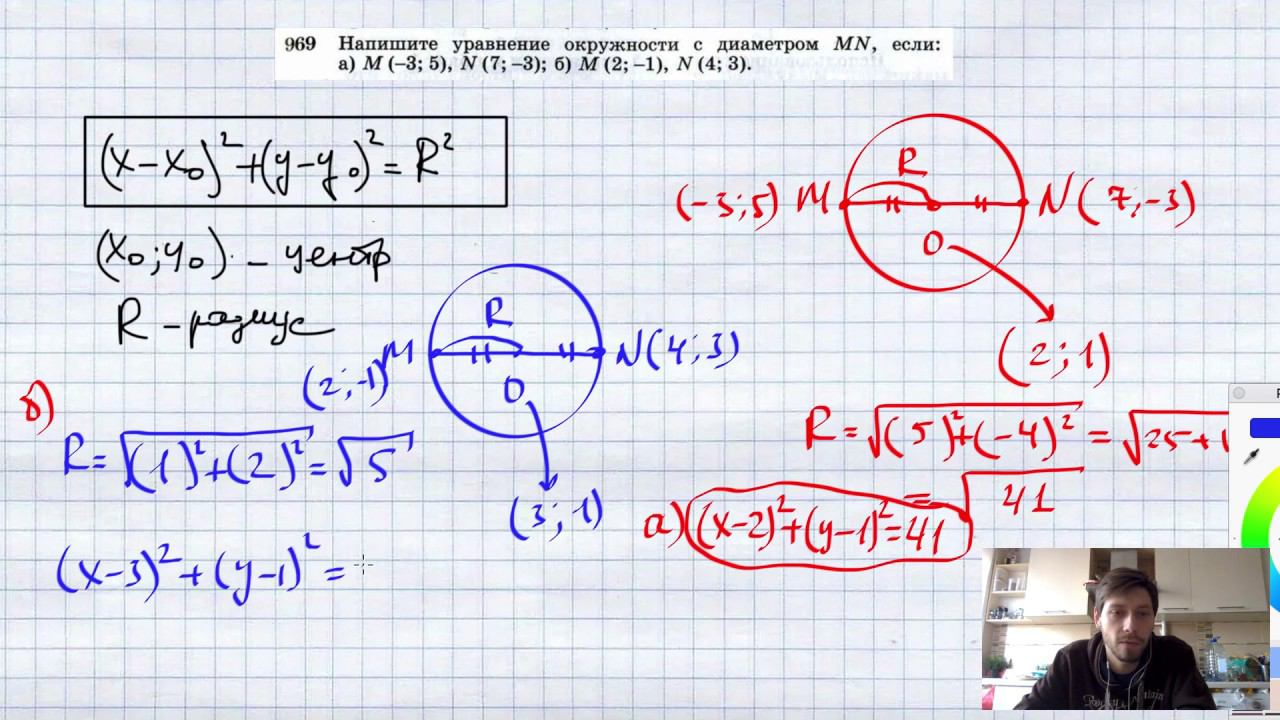 969 Напишите уравнение окружности с диаметром MN, если:
а) M (–3; 5), N (7; –3); б) M (2; –1), N (4; 3).
(x-x₀)²+(y-y₀)²=R²
(x₀;y₀) - центр
R - радиус
(-3;5) M
R
O
N(7;-3)
(2;1)
R=√(5)²+(-4)² = √25+1
= √41
а) (x-2)²+(y-1)²=41
(2;-1) M
R
O
N(4;3)
(3;1)
б)
R=√(1)²+(2)²=√5
(x-3)²+(y-1)²=